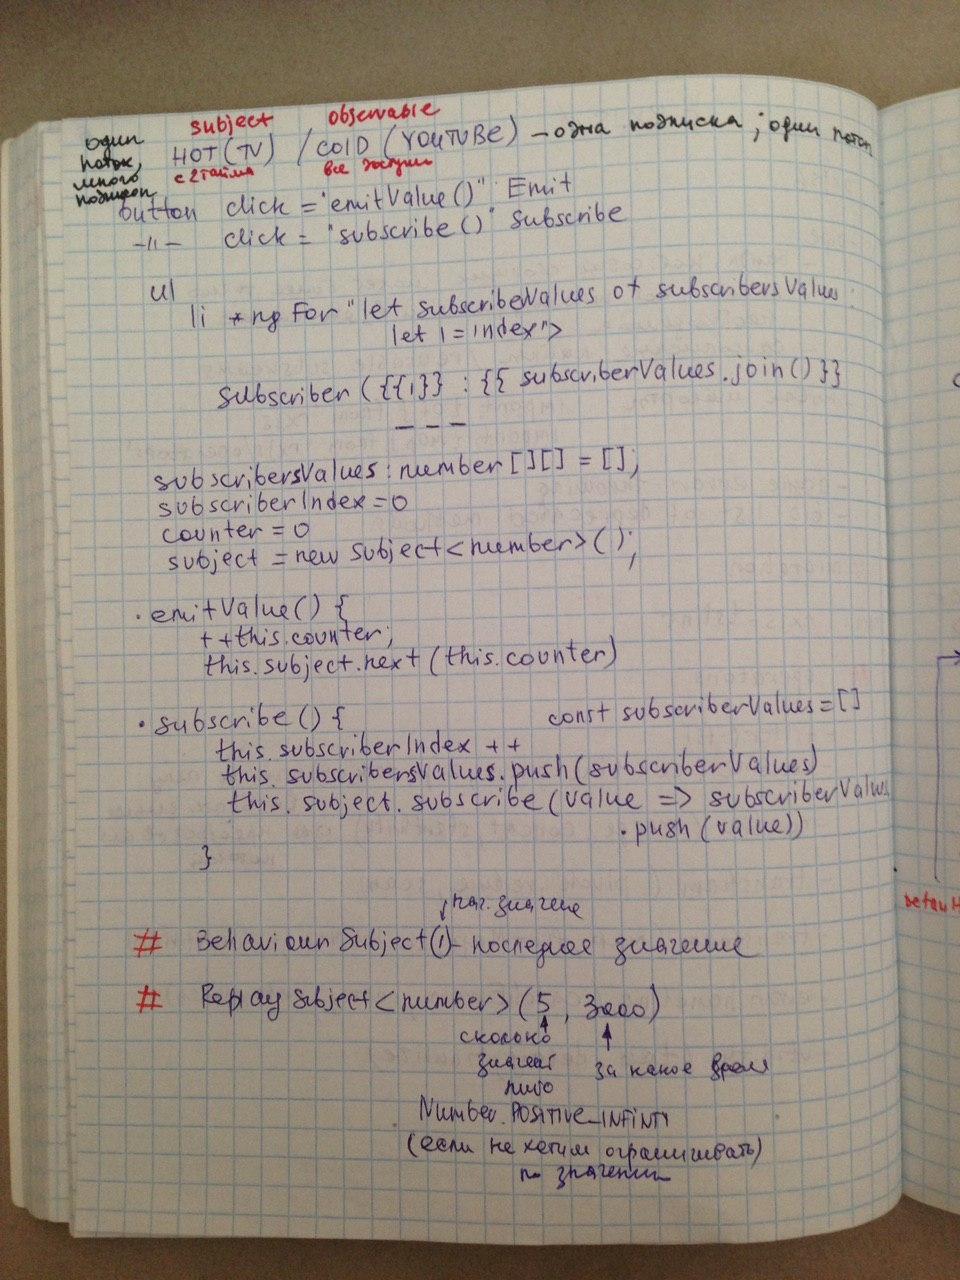 subject observable
один поток, много подписок
HOT (TV) / COLD (YOUTUBE) – одна подписка ; один поток
с 2 тайма все доступн
button click = "emitValue()" Emit
–//– click = "subscribe()" subscribe
ul
li *ngFor "let subscribeValues of subscribersValues
let i = index">
Subscriber ({{i}} : {{ subscriberValues.join() }}
– – –
subscribersValues : number [][] = [];
subscriberIndex = 0
counter = 0
subject = new Subject<number>();
· emitValue() {
++this.counter;
this.subject.next (this.counter)
· subscribe() { const subscriberValues = []
this.subscriberIndex ++
this.subscribersValues.push(subscriberValues)
this.subject.subscribe (value => subscriberValues
.push (value))
}
нач. значене
# Behaviour Subject(1) - последнее значение
# Replay Subject <number> (5, 3000)
сколько
значен за какое время
либо
Number.POSITIVE_INFINTY
(если не хотим ограничивать)
по значении